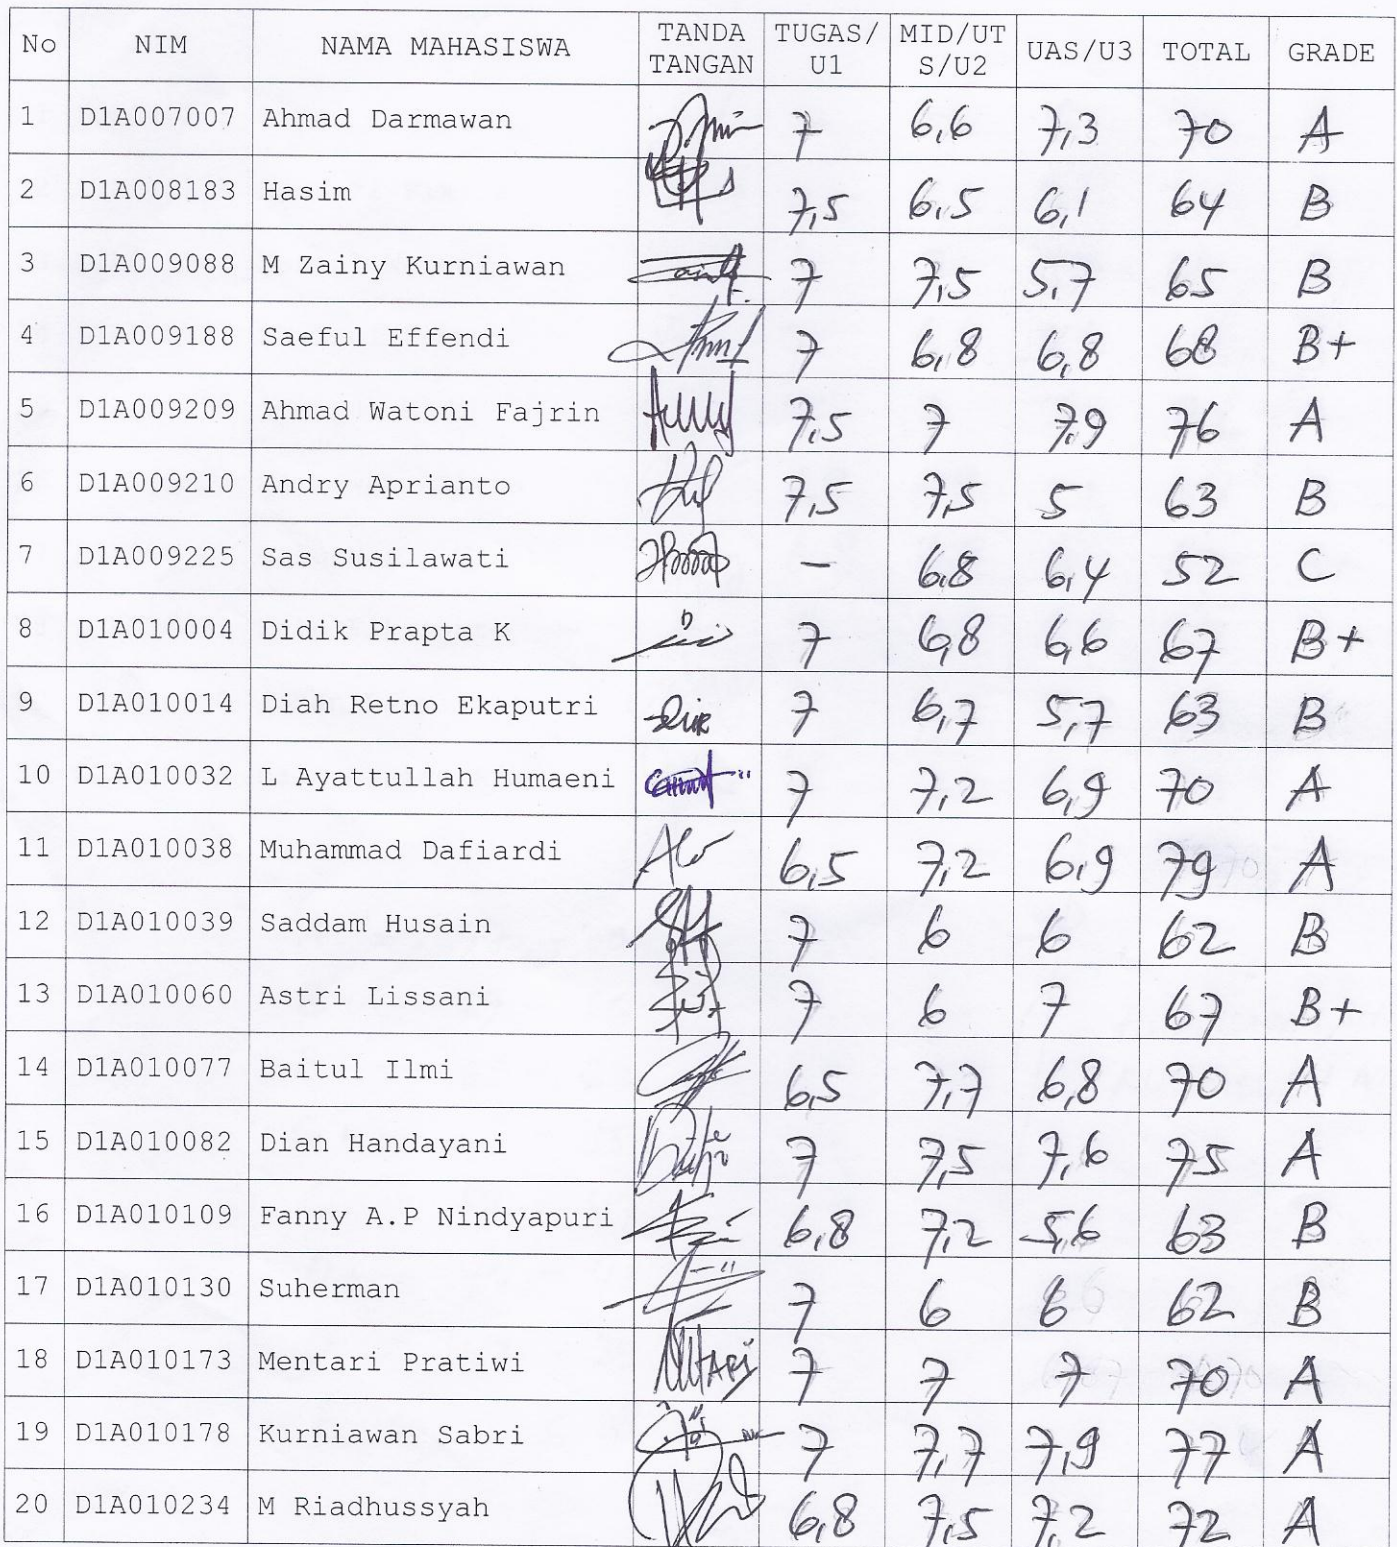 No NIM NAMA MAHASISWA TANDA TANGAN TUGAS/U1 MID/UTS/U2 UAS/U3 TOTAL GRADE
1 D1A007007 Ahmad Darmawan 7 6,6 7,3 70 A
2 D1A008183 Hasim 7,5 6,5 6,1 64 B
3 D1A009088 M Zainy Kurniawan 7 7,5 5,7 65 B
4 D1A009188 Saeful Effendi 7 6,8 6,8 68 B+
5 D1A009209 Ahmad Watoni Fajrin 7,5 7 7,9 76 A
6 D1A009210 Andry Aprianto 7,5 7,5 5 63 B
7 D1A009225 Sas Susilawati – 6,8 6,4 52 C
8 D1A010004 Didik Prapta K 7 6,8 6,6 67 B+
9 D1A010014 Diah Retno Ekaputri 7 6,7 5,7 63 B
10 D1A010032 L Ayattullah Humaeni 7 7,2 6,9 70 A
11 D1A010038 Muhammad Dafiardi 6,5 7,2 6,9 79 A
12 D1A010039 Saddam Husain 7 6 6 62 B
13 D1A010060 Astri Lissani 7 6 7 67 B+
14 D1A010077 Baitul Ilmi 6,5 7,7 6,8 70 A
15 D1A010082 Dian Handayani 7 7,5 7,6 75 A
16 D1A010109 Fanny A.P Nindyapuri 6,8 7,2 5,6 63 B
17 D1A010130 Suherman 7 6 6 62 B
18 D1A010173 Mentari Pratiwi 7 7 7 70 A
19 D1A010178 Kurniawan Sabri 7 7,7 7,9 77 A
20 D1A010234 M Riadhussyah 6,8 7,5 7,2 72 A